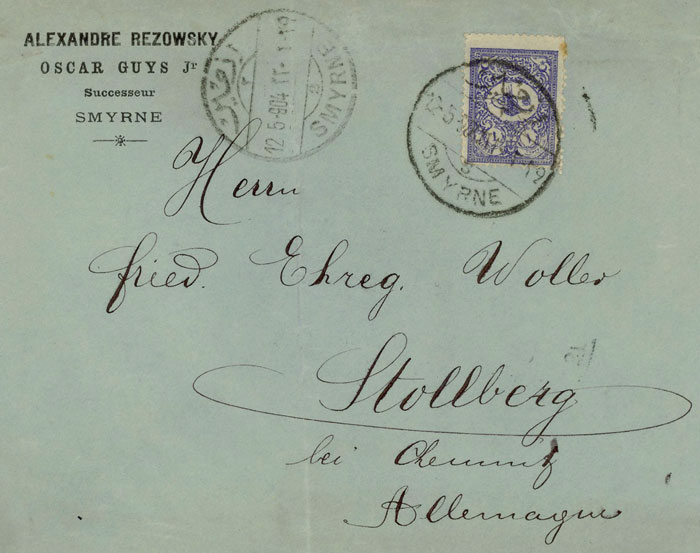 ALEXANDRE REZOWSKY
OSCAR GUYS Jr
Successeur
SMYRNE
SMYRNE
12 5 904
SMYRNE
Herrn
fried. Ehreg. Woller
Stollberg
bei Chemnitz
Allemagne